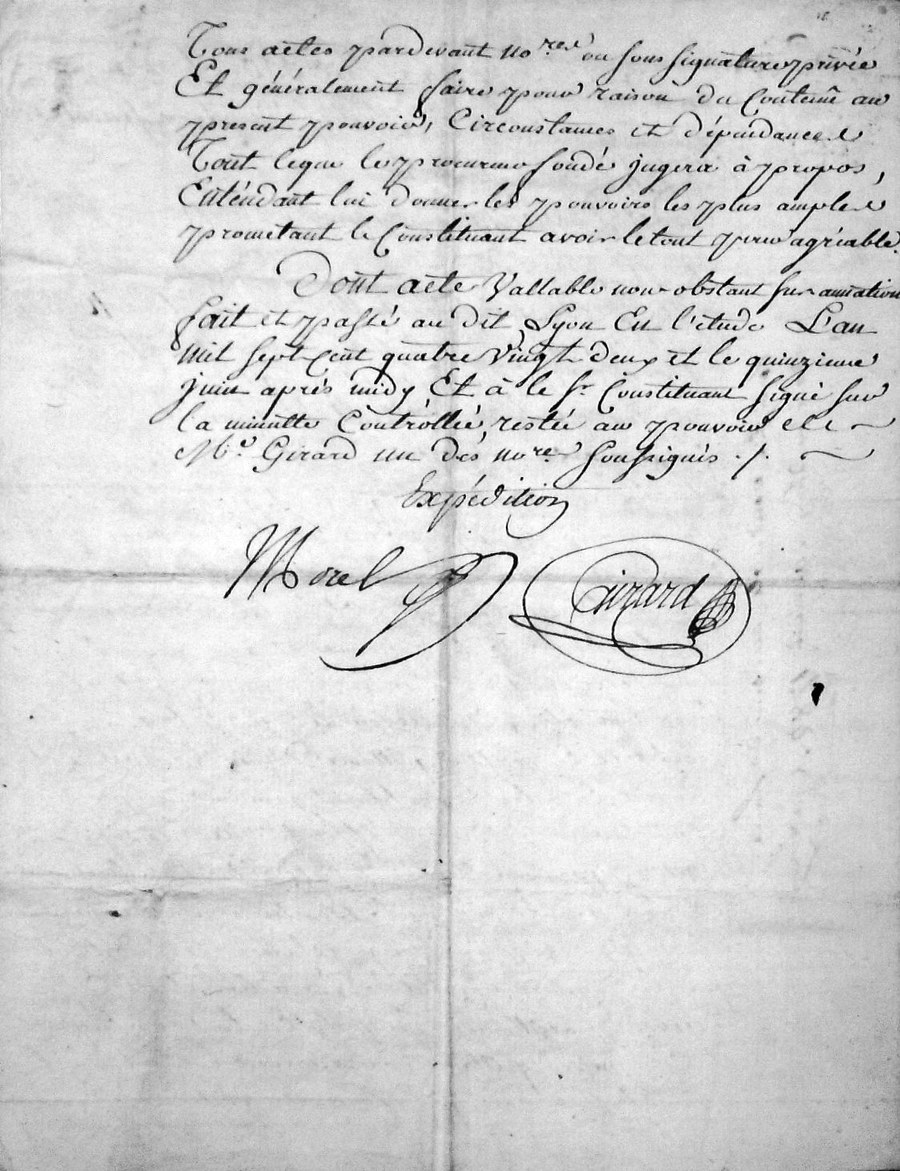 Tous actes pardevant no.res ou sous signature privée
Et généralement faire pour raison du Contenu au
present pouvoir, Circonstances et dépendances
Tout ceque le procureur fondé jugera à propos,
Entendant lui donner les pouvoirs les plus amples
prometant le Constituant avoir le tout pour agréable.
Dont acte Vallable non obstant surannation
fait et passé au dit Lyon En l'étude L'an
mil sept cent quatre vingt deux et le quinzieme
juin après midy Et à le Sr. Constituant signé sur
la minutte Controllée restée au pouvoir de
Me. Girard un des no.res soussignés ./.
Expédition
Morel Girard